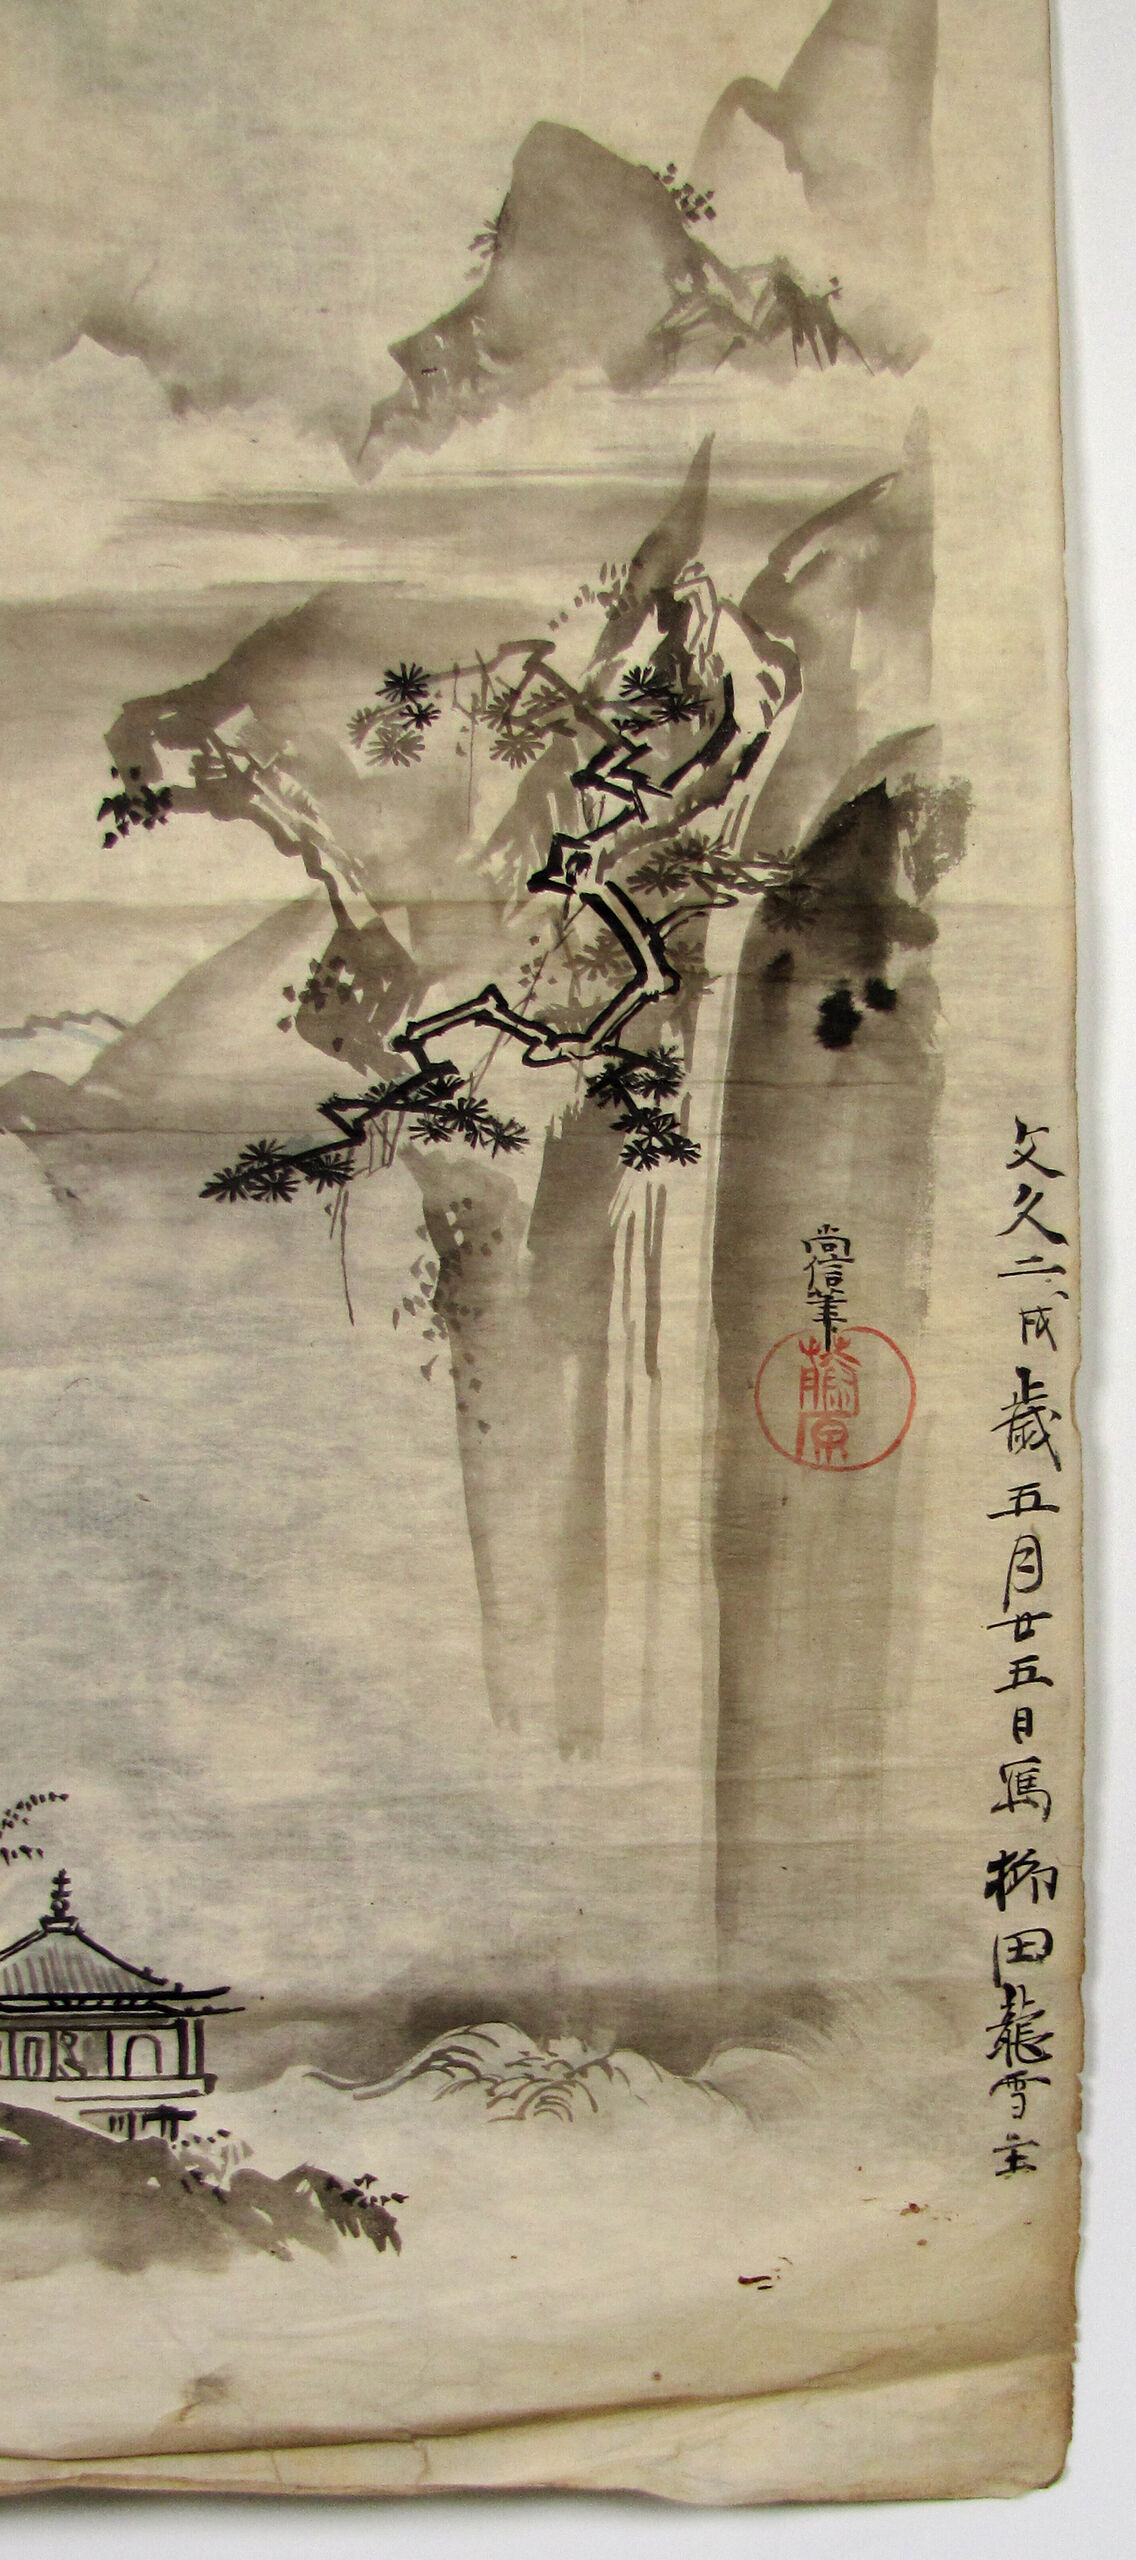 文久二戌歳五月廿五日写柳田龍雪主
尚信筆
藤原